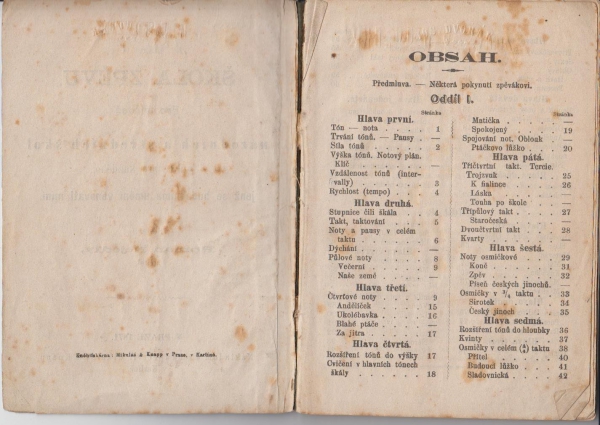 Knihtiskárna: Mikuláš & Knapp v Praze, v Karlíně.
OBSAH.
Předmluva. — Některá pokynutí zpěvákovi.
Oddíl I.
Stránka
Hlava první.
Tón — nota . . . . . 1
Trvání tónů. — Pausy . —
Síla tónů . . . . . 2
Výška tónů. Notový plán.
Klíč . . . . . —
Vzdálenost tónů (inter-
vally) . . . . . 3
Rychlost (tempo) . . . 4
Hlava druhá.
Stupnice čili škála . . . 4
Takt, taktování . . . 5
Noty a pausy v celém
taktu . . . . . 6
Dýchání . . . . . —
Půlové noty . . . . 8
Večerní . . . . . 9
Naše země . . . . —
Hlava třetí.
Čtvrťové noty . . . . 9
Andělíček . . . . 15
Ukolébavka . . . . 16
Blahé ptáče . . . . —
Za jitra . . . . . 17
Hlava čtvrtá.
Rozšíření tónů do výšky 17
Cvičení v hlavních tónech
škály . . . . . 18
Stránka
Matička . . . . . —
Spokojený . . . . 19
Spojování not. Oblouk . —
Ptáčkovo lůžko . . . 20
Hlava pátá.
Tříčtvrtní takt. Tercie.
Trojzvuk . . . . 25
K fialince . . . . 26
Láska . . . . . —
Touha po škole . . . —
Třípůlový takt . . . . 27
Staročeská . . . . —
Dvoučtvrtní takt . . . 28
Kvarty . . . . . —
Hlava šestá.
Noty osmičkové . . . 29
Koně . . . . . 31
Zpěv . . . . . 32
Píseň českých jinochů . —
Osmičky v 3/4 taktu . . 33
Sirotek . . . . . 34
Český jinoch . . . 35
Hlava sedmá.
Rozšíření tónů do hloubky 36
Kvinty . . . . . 37
Osmičky v celém (4/4) taktu 38
Přítel . . . . . 40
Budoucí lůžko . . . 41
Sladovnická . . . . 42